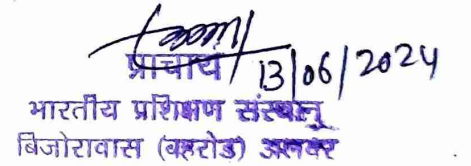 प्राचार्य 13/06/2024
भारतीय प्रशिक्षण संस्थान
बिजोरावास (बहरोड) अलवर